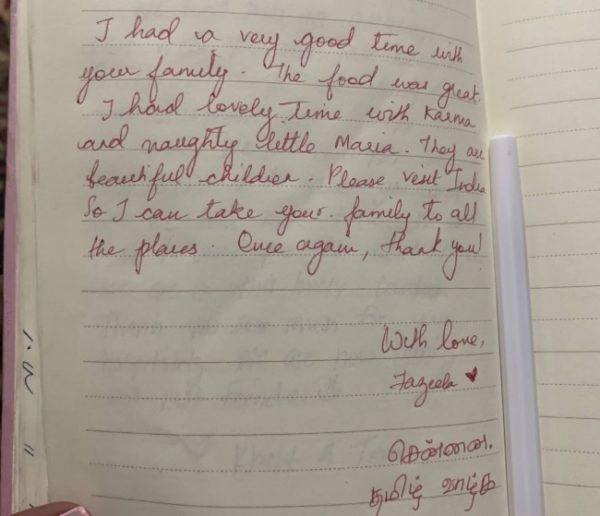 I had a very good time with
your family. The food was great.
I had lovely time with Karma
and naughty little Maria. They are
beautiful children. Please visit India
So I can take your family to all
the places. Once again, thank you!
With love,
Fazeela ♥
சென்னை.
தமிழ் வாழ்க